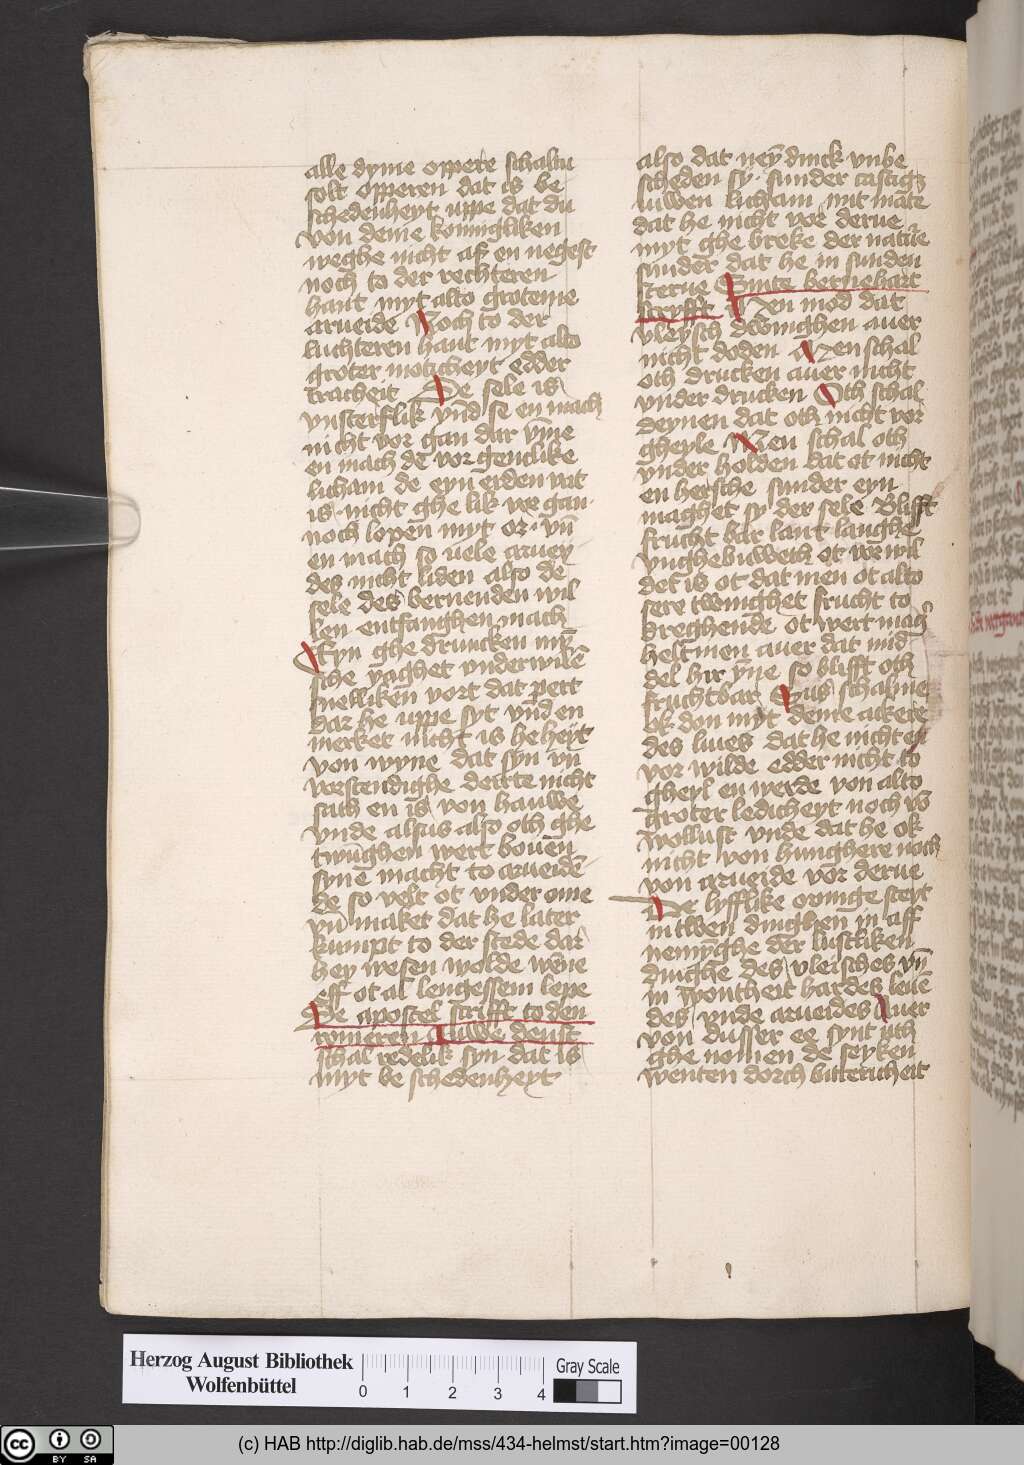 alle dyme oppere schaltu
solt opperen dat is be
schedenheyt uppe dat du
von deme konnigliken
weghe nicht af en negest
noch to der rechteren
hant myt alto groteme
arueide Noch to der
luchteren hant myt alto
groter moticheyt edder
tracheit De sele is
vnsterflik vnd se en mach
nicht vor gan dar v̄me
en mach de vorgenclike
licham de eyn erden vat
is nicht ghe lik we gan
noch lopen myt or vn̄
en mach so uele aruey
des nicht liden also de
sele des beruenden wil
len entfanghen mach
Eyn ghe druncken my̅
sche yaghet underwilē
snelliken vort dat pert
dar he uppe syt vnd en
merket nicht is he heyt
von wyne dat syn vn̄
vorstendighe derte nicht
sath en is von hauwe
vnde alsus also oth ghe
twūghen wert bouen
synē macht to arueidē
de so velt ot under ome
vn̄ maket dat he later
kumpt to der stede dar
hey wesen wolde wēne
eff ot al lengessem lepe
De apostel scrifft to den
romeren Juwe denst
schal redelik syn dat is
myt be schedenheyt
also dat ney̅ dinck vnbe
scheden sy sunder castigh
iuwen licham mit mate
dat he nicht vor derue
myt ghe breke der natue
sunder dat he in sunden
sterue Sinte bernehart
scryfft Men mod dat
vleysch dwinghen auer
nicht doden Men schal
oth drucken auer nicht
vnder drucken Oth schal
deynen dat oth nicht vor
gheyle Men schal oth
vnder holden dat ot nicht
en hersche sunder eyn
maghet sy der sele Blifft
frucht bar lant langhe
vnghebuwech ot vorwil
det is ot dat men ot alto
sere twinghet frucht to
breghende ot wert mach
helt men auer dat mid
del hir y̅ne so blifft oth
fruchtbar Sus schalme
ok don myt deme ackere
des liues dat he nicht en
vor wilde edder nicht to
gheyl en werde von alto
groter ledicheyt noch vō
wollust vnde dat he ok
nicht von hunghere noch
von arueide vor derue
De lyfflike oninge steyt
in twen dinghen in aff
nemy̅ghe der lustliken
dinghe des vleisches vn̄
in pontheit hardes leuē
des vnde arueides Auer
von dusser ee synt uth
ghe nomen de seyken
wenten dorch bittericheit
Herzog August Bibliothek
Wolfenbüttel
0 1 2 3 4
Gray Scale
cc BY SA
(c) HAB http://diglib.hab.de/mss/434-helmst/start.htm?image=00128